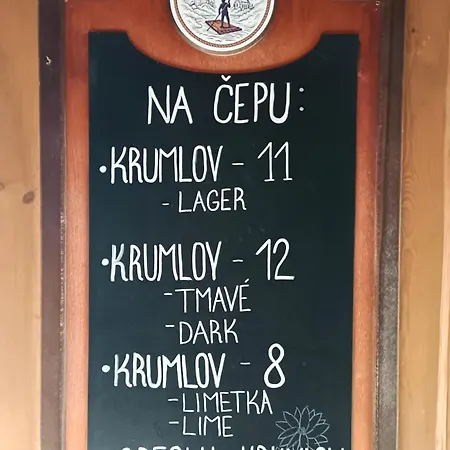 NA ČEPU:
•KRUMLOV - 11
- LAGER
•KRUMLOV - 12
- TMAVÉ
- DARK
•KRUMLOV - 8
- LIMETKA
- LIME